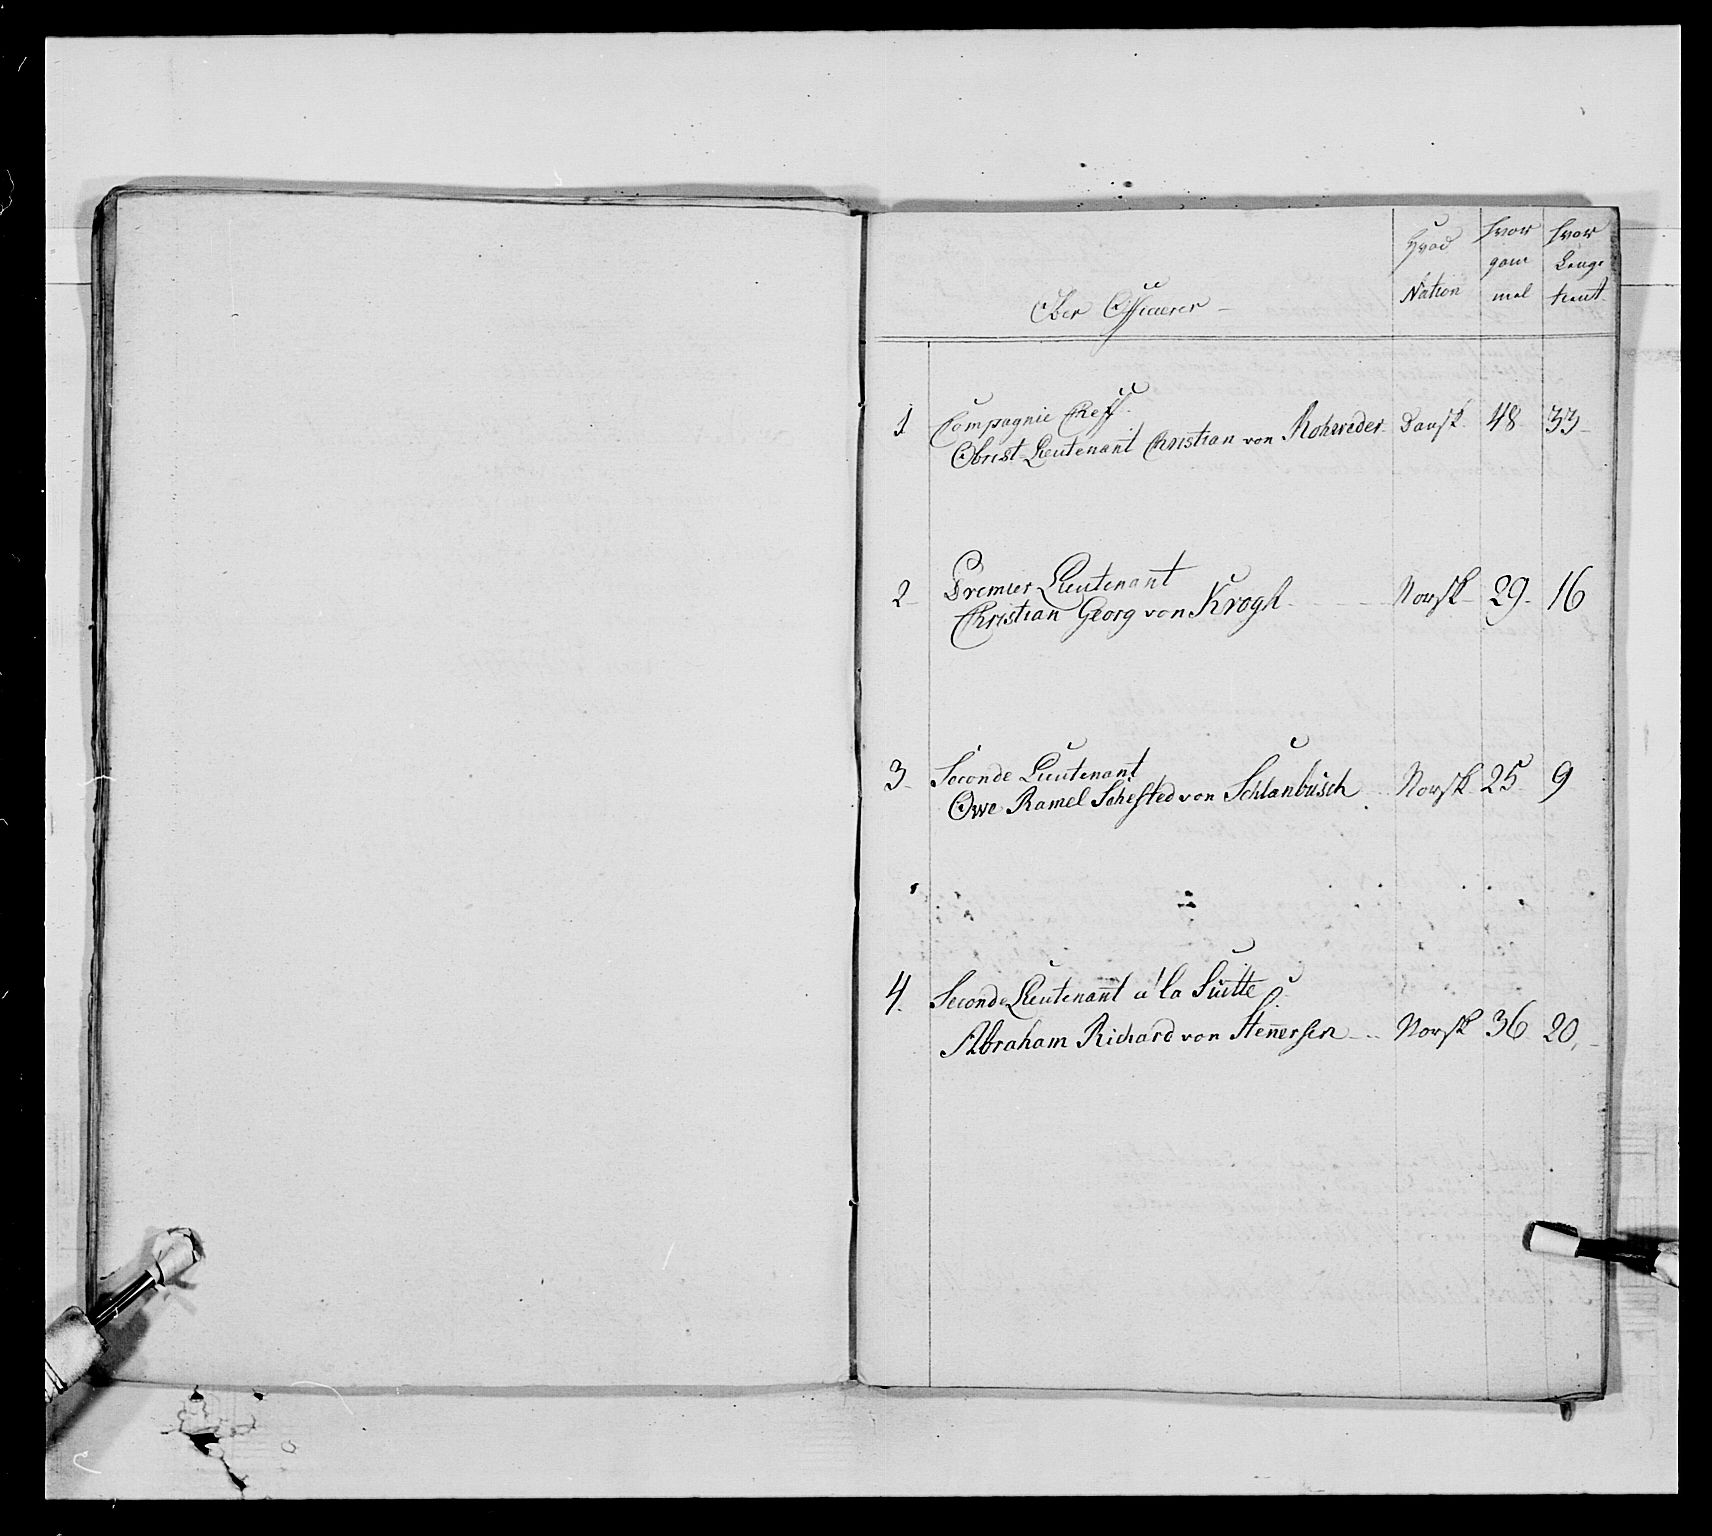 Ober Officerer
Hvad Nation
hvor gam mel
hvor Længe tient
1 Compagnie Cheff
Obrist Lieutenant Christian von Rohweder Dansk 48 33
2 Premier Lieutenant
Christian Georg von Krogh Norsk 29 16
3 Seconde Lieutenant
Owe Ramel Sehested von Schlanbusch Norsk 25 9
4 Seconde Lieutenant a la Suitte
Abraham Richard von Stenersen Norsk 36 20